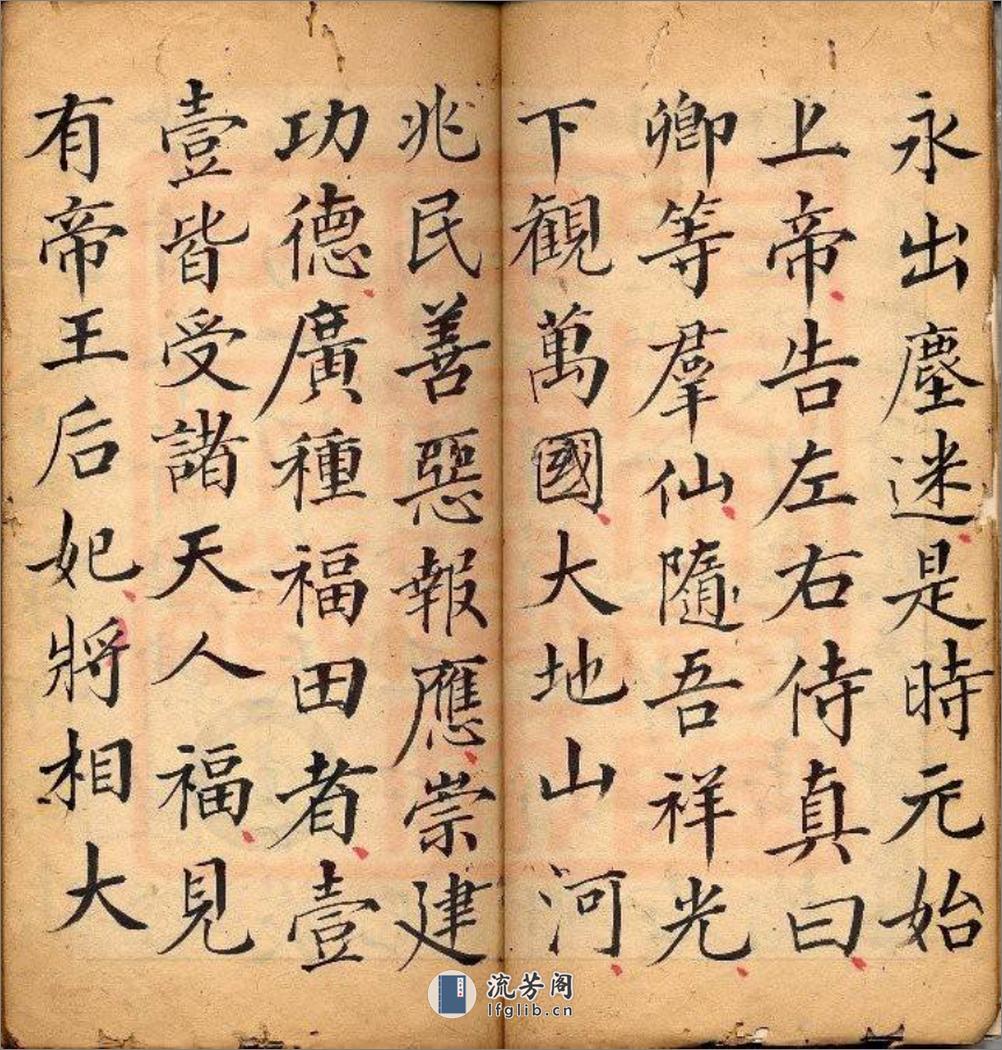 永出塵迷是時元始
上帝告左右侍真曰
卿等羣仙隨吾祥光
下觀萬國大地山河
兆民善惡報應崇建
功德廣種福田者壹
壹皆受諸天人福見
有帝王后妃將相大
流芳阁
lfglib.cn